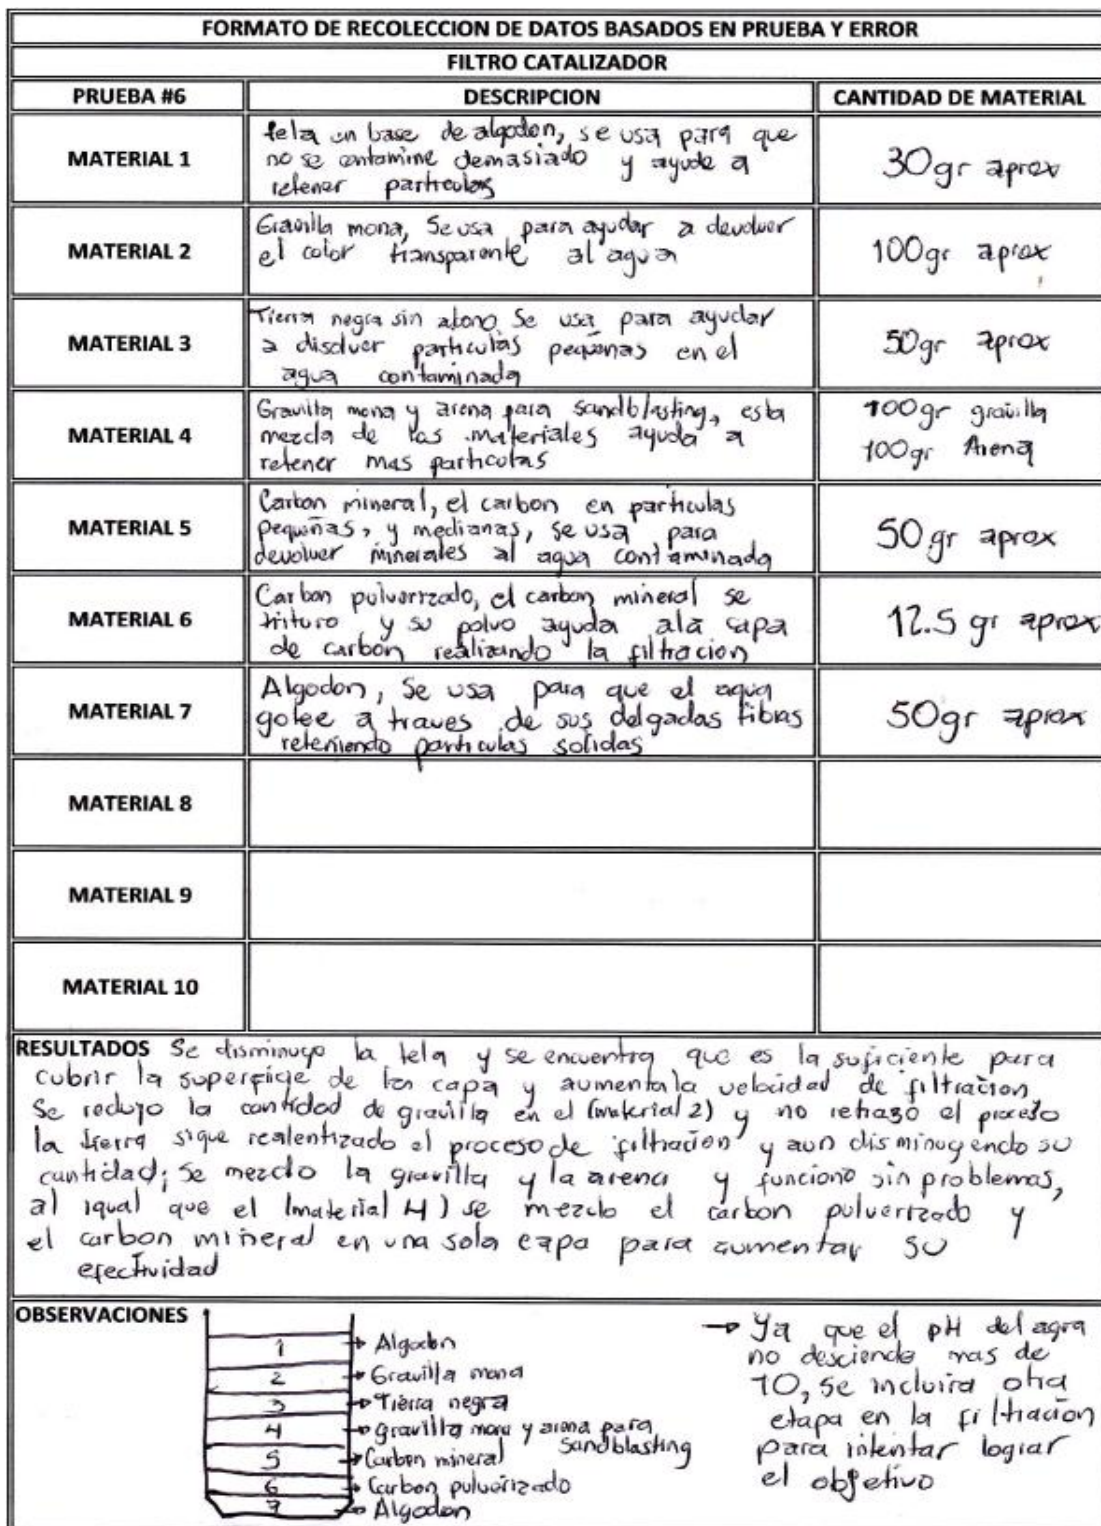 FORMATO DE RECOLECCION DE DATOS BASADOS EN PRUEBA Y ERROR
FILTRO CATALIZADOR
PRUEBA #6 DESCRIPCION CANTIDAD DE MATERIAL
MATERIAL 1
tela en base de algodon, se usa para que
no se contamine demasiado y ayude a
retener particulas
30gr aprox
MATERIAL 2
Gravilla mona, Se usa para ayudar a devolver
el color transparente al agua
100gr aprox
MATERIAL 3
Tierra negra sin abono, Se usa para ayudar
a disolver particulas pequeñas en el
agua contaminada
50gr aprox
MATERIAL 4
Gravilla mona y arena para sandblasting, esta
mezcla de los materiales ayuda a
retener mas particulas
100gr gravilla
100gr Arena
MATERIAL 5
Carbon mineral, el carbon en particulas
pequeñas, y medianas, se usa para
devolver minerales al agua contaminada
50 gr aprox
MATERIAL 6
Carbon pulverizado, el carbon mineral se
trituro y su polvo ayuda ala capa
de carbon realizando la filtracion
12.5 gr aprox
MATERIAL 7
Algodon, Se usa para que el agua
gotee a traves de sus delgadas fibras
reteniendo particulas solidas
50gr aprox
MATERIAL 8
MATERIAL 9
MATERIAL 10
RESULTADOS Se disminuyo la tela y se encuentra que es la suficiente para
cubrir la superficie de la capa y aumenta la velocidad de filtracion,
Se redujo la cantidad de gravilla en el (material 2) y no retraso el proceso
la tierra sigue realentizado el proceso de filtracion y aun disminuyendo su
cantidad; Se mezclo la gravilla y la arena y funciono sin problemas,
al igual que el (material 4) se mezclo el carbon pulverizado y
el carbon mineral en una sola capa para aumentar su
efectividad
OBSERVACIONES
1 Algodon
2 Gravilla mona
3 Tierra negra
4 gravilla mona y arena para
sandblasting
5 Carbon mineral
6 Carbon pulverizado
7 Algodon
→ Ya que el pH del agua
no desciende mas de
10, se incluira otra
etapa en la filtracion
para intentar lograr
el objetivo